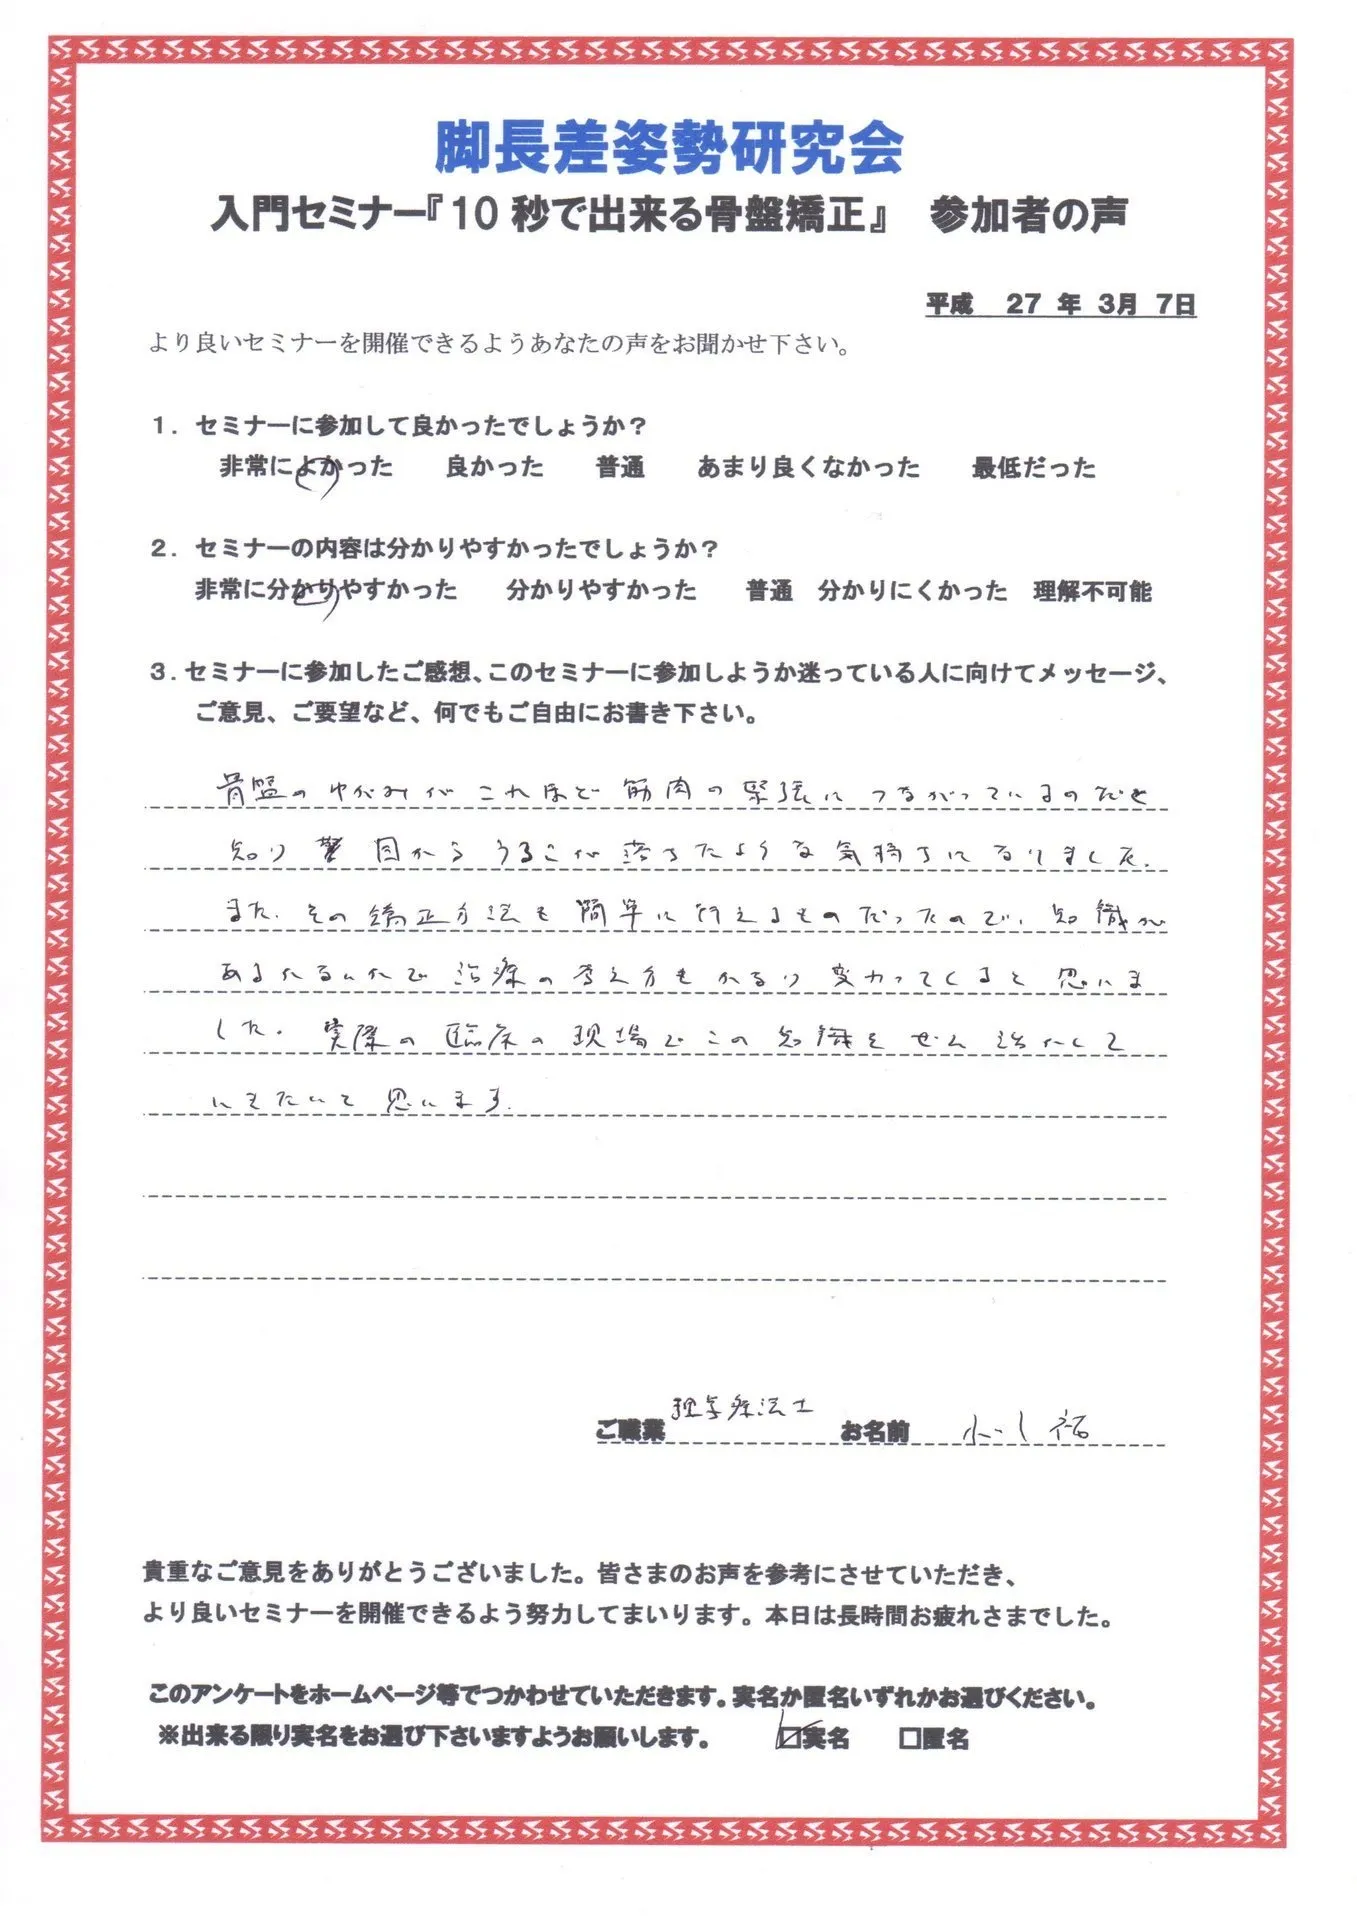 脚長差姿勢研究会
入門セミナー『10秒で出来る骨盤矯正』 参加者の声
平成 27 年 3月 7日
より良いセミナーを開催できるようあなたの声をお聞かせ下さい。
1. セミナーに参加して良かったでしょうか？
非常によかった 良かった 普通 あまり良くなかった 最低だった
2. セミナーの内容は分かりやすかったでしょうか？
非常に分かりやすかった 分かりやすかった 普通 分かりにくかった 理解不可能
3. セミナーに参加したご感想、このセミナーに参加しようか迷っている人に向けてメッセージ、
ご意見、ご要望など、何でもご自由にお書き下さい。
骨盤のゆがみがこれほど筋肉の緊張につながっているのだと
知り 目からうろこが落ちたような気持ちになりました。
また、その矯正方法も簡単に行えるものだったので、知識が
あるかないかで治療の考え方もかなり変わってくると思いま
した。実際の臨床の現場でこの知識をぜひ活かして
いきたいと思います。
ご職業 理学療法士 お名前 祐
貴重なご意見をありがとうございました。皆さまのお声を参考にさせていただき、
より良いセミナーを開催できるよう努力してまいります。本日は長時間お疲れさまでした。
このアンケートをホームページ等でつかわせていただきます。実名か匿名いずれかお選びください。
※出来る限り実名をお選び下さいますようお願いします。 ☑実名 □匿名